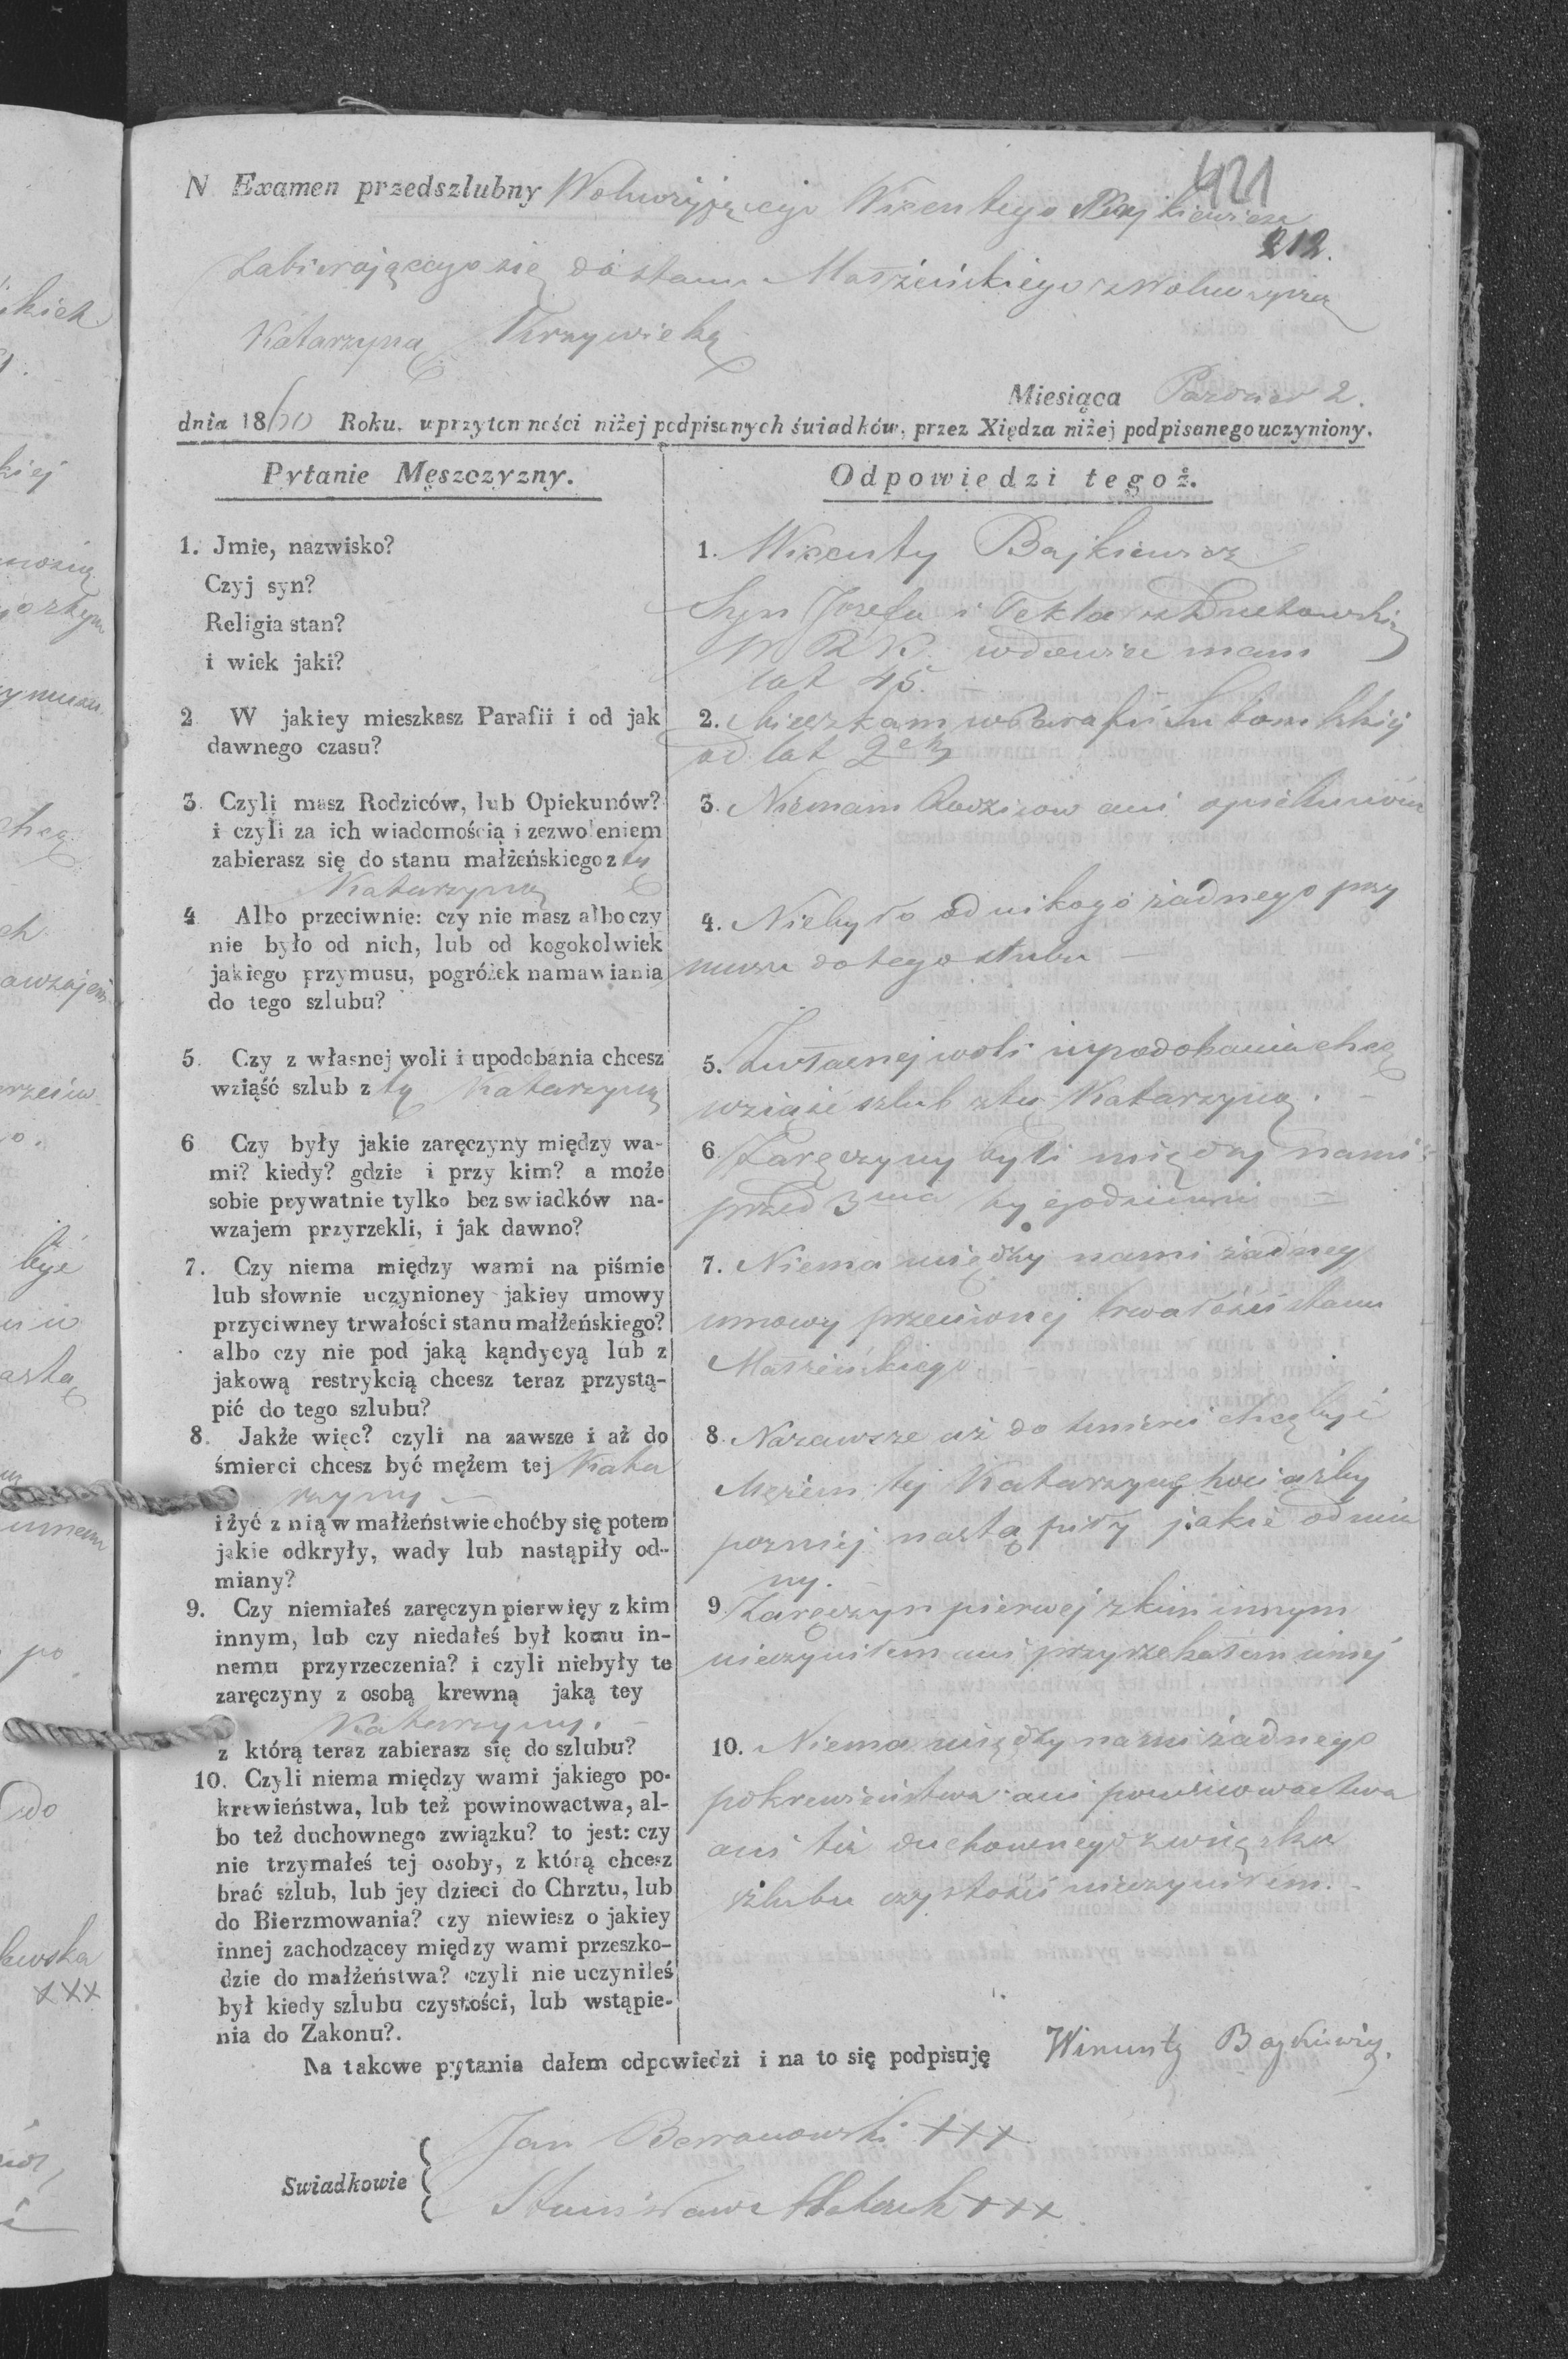 421
N Examen przedszlubny Wicentego Bajkiewicza
212.
Zabierającego się do stanu Małżeńskiego z
Katarzyną Krzywicką
Miesiąca 2.
dnia 1860 Roku, w przytomności niżej podpisanych świadków, przez Xiędza niżej podpisanego uczyniony.
Pytanie Męszczyzny.
1. Jmie, nazwisko?
Czyj syn?
Religia stan?
i wiek jaki?
2 W jakiey mieszkasz Parafii i od jak
dawnego czasu?
3. Czyli masz Rodziców, lub Opiekunów?
i czyli za ich wiadomością i zezwoleniem
zabierasz się do stanu małżeńskiego z tą
Katarzyną
4 Albo przeciwnie: czy nie masz albo czy
nie było od nich, lub od kogokolwiek
jakiego przymusu, pogróżek namawiania
do tego szlubu?
5. Czy z własnej woli i upodobania chcesz
wziąść szlub z tą Katarzyną
6 Czy były jakie zaręczyny między wa-
mi? kiedy? gdzie i przy kim? a może
sobie prywatnie tylko bez swiadków na-
wzajem przyrzekli, i jak dawno?
7. Czy niema między wami na piśmie
lub słownie uczynioney jakiey umowy
przyciwney trwałości stanu małżeńskiego?
albo czy nie pod jaką kąndycyą lub z
jakową restrykcią chcesz teraz przystą-
pić do tego szlubu?
8. Jakże więc? czyli na zawsze i aż do
śmierci chcesz być mężem tej Kata
rzyny –
i żyć z nią w małżeństwie choćby się potem
jakie odkryły, wady lub nastąpiły od-
miany?
9. Czy niemiałeś zaręczyn pierwięy z kim
innym, lub czy niedałeś był komu in-
nemu przyrzeczenia? i czyli niebyły te
zaręczyny z osobą krewną jaką tey
Katarzyny. –
z którą teraz zabierasz się do szlubu?
10. Czyli niema między wami jakiego po-
krewieństwa, lub też powinowactwa, al-
bo też duchownego związku? to jest: czy
nie trzymałeś tej osoby, z którą chcesz
brać szlub, lub jey dzieci do Chrztu, lub
do Bierzmowania? czy niewiesz o jakiey
innej zachodzącey między wami przeszko-
dzie do małżeństwa? czyli nie uczyniłeś
był kiedy szlubu czystości, lub wstąpie-
nia do Zakonu?.
Odpowiedzi tegoż.
1. Wicenty Bajkiewicz
Syn Józefa i Tekla
W R K. wdowiec mam
lat 45.
2. Mieszkam w Parafii
od lat 2ch
3. Niemam Rodzicow ani opiekunów
4. Niebyło od nikogo żadnego przy
musu do tego szlubu –
5. Z własnej woli i upodobania chcę
wziąść szlub z tą Katarzyną. –
6 Zaręczyny byli między nami
przed 3ma tygodniami –
7. Niema między nami żadney
umowy przeciwnej trwałości stanu
Małżeńskiego
8. Nazawsze aż do śmierci chcę być
Mężem tej Katarzyny chociażby
pozniej nastąpiły jakie odmia
ny. –
9. Zaręczyn pierwej z kim innym
nieczyniłem ani przyrzekałem innej
10. Niema między nami żadnego
pokrewieństwa ani powinowactwa
ani też duchownego związku
szlubu czystości nieczyniłem. –
Na takowe pytania dałem odpowiedzi i na to się podpisuję Wincenty Bajkiewicz.
Swiadkowie
Jan Baranowski +++
Stanisław +++